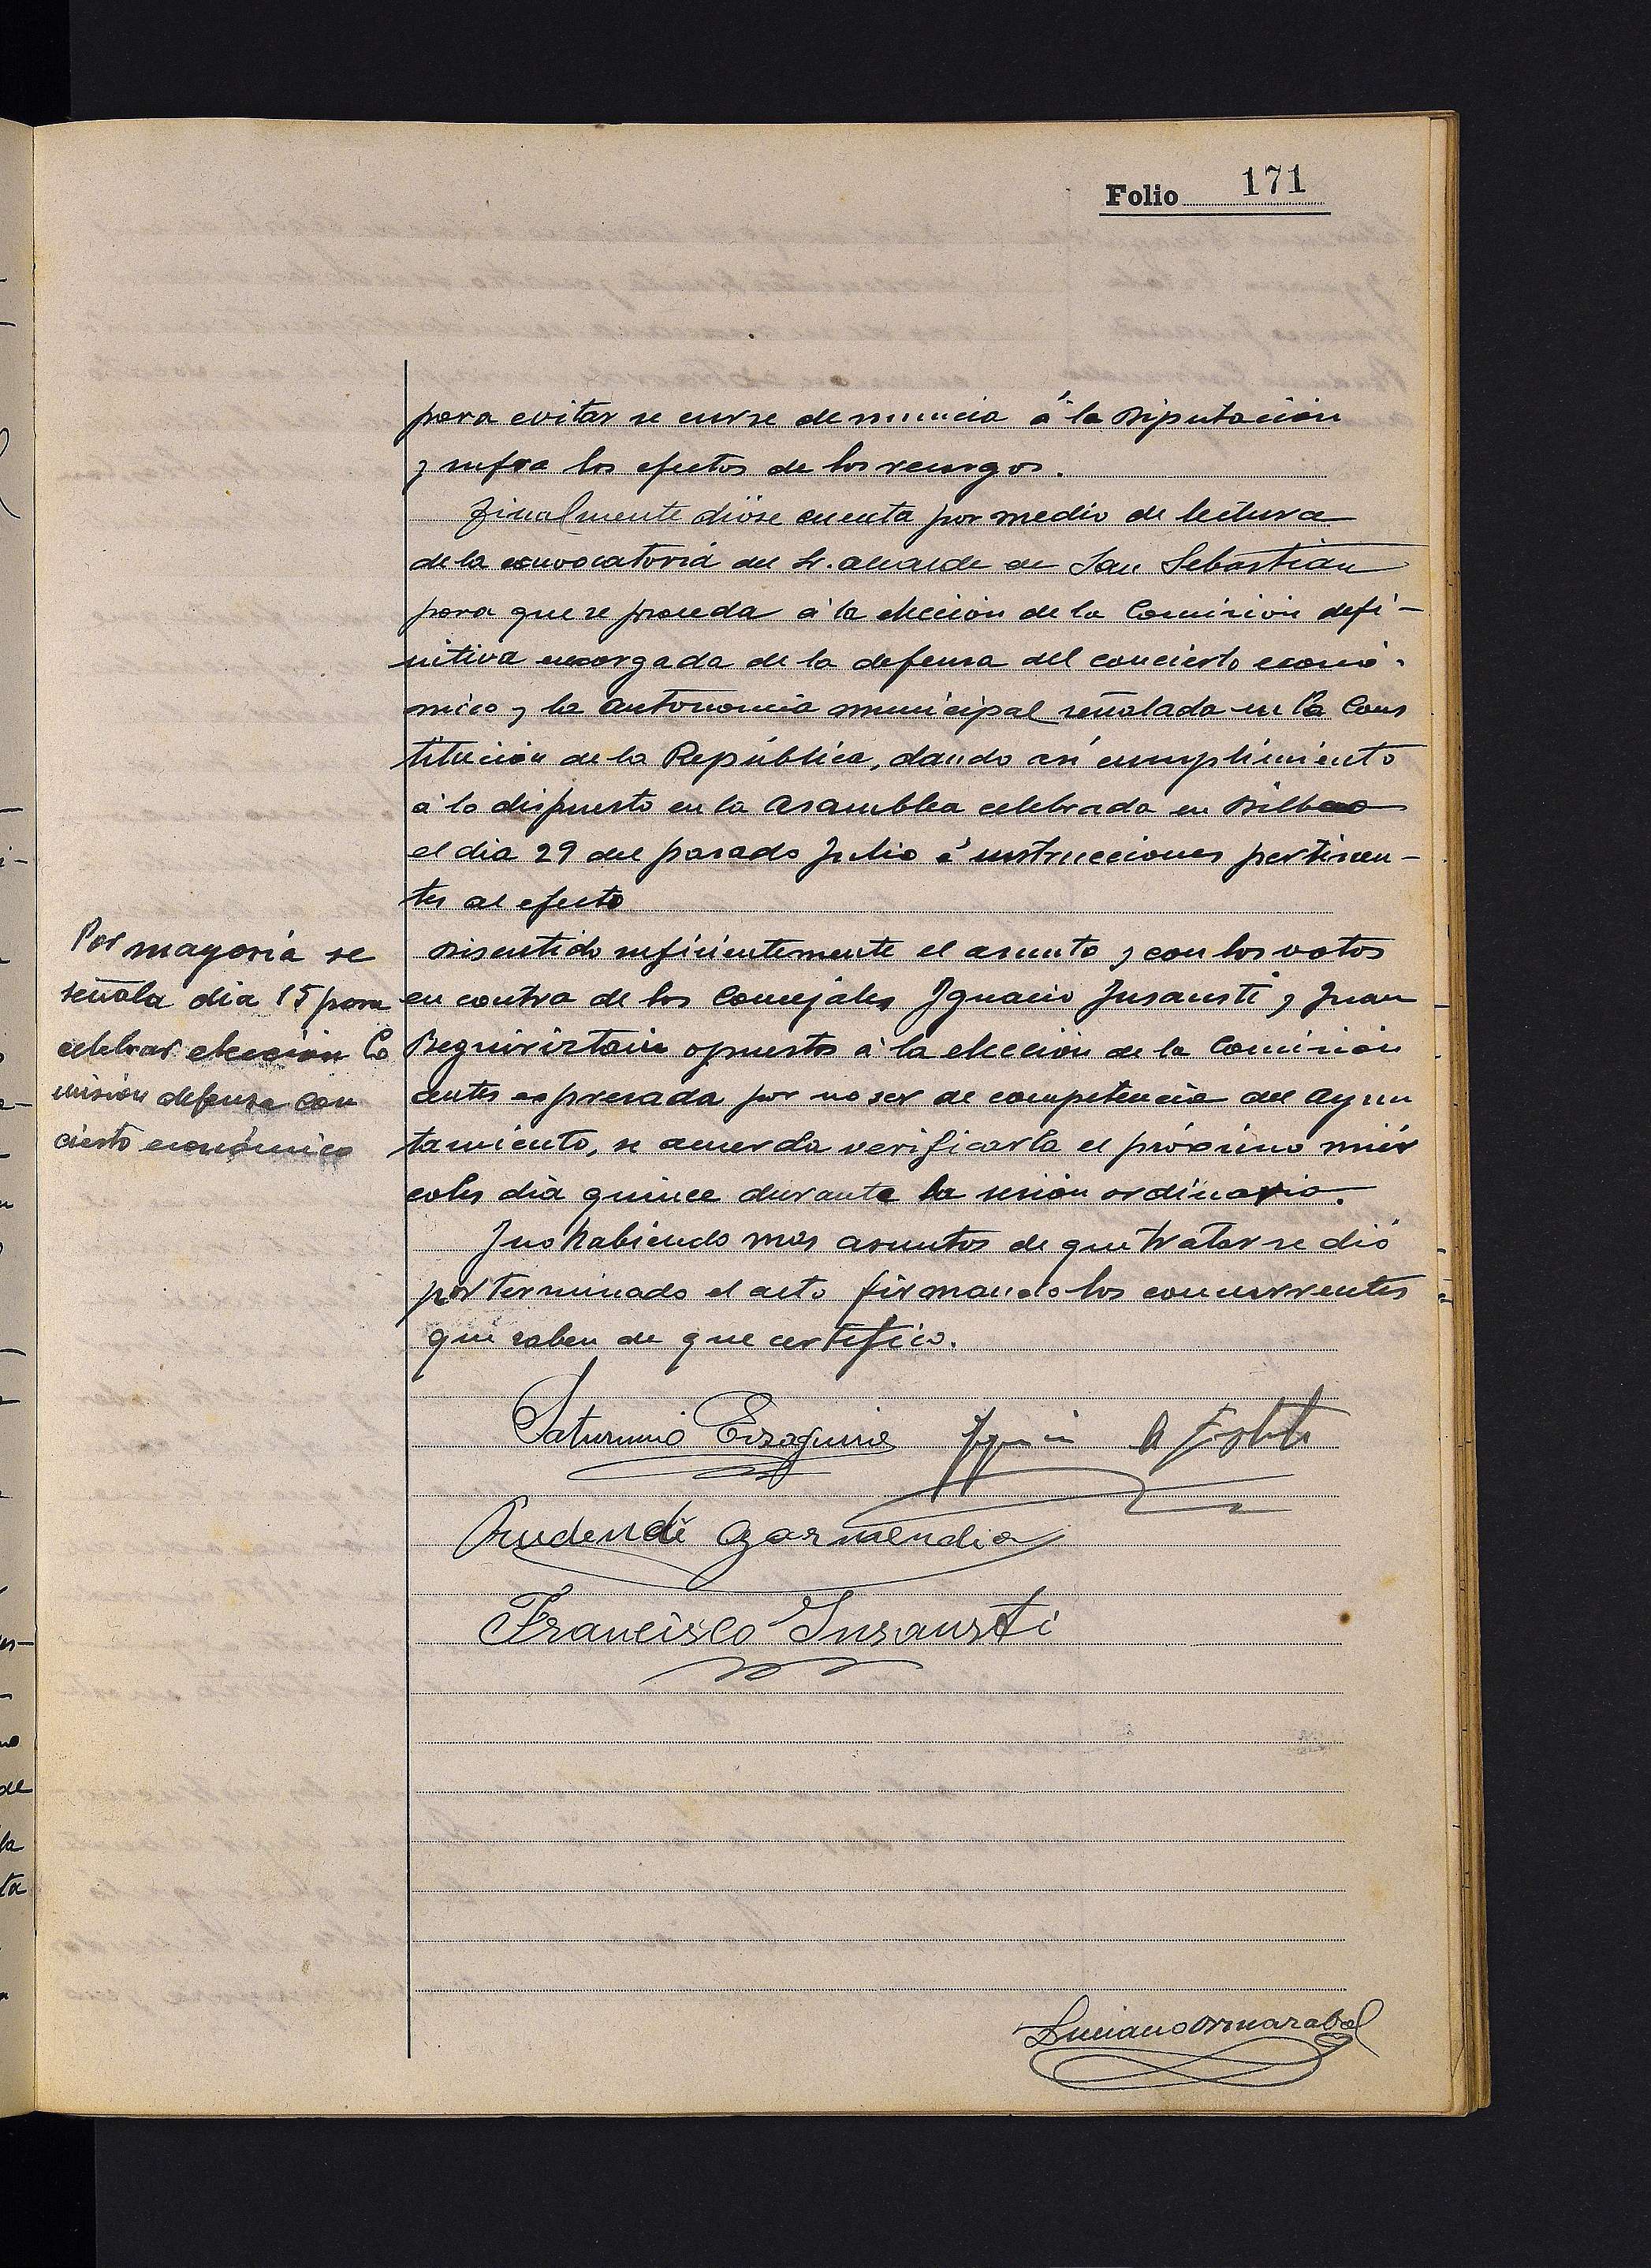 Folio 171
para evitar se curse denuncia á la Diputación
y sufra los efectos de los recargos.
Finalmente dióse cuenta por medio de lectura
de la convocatoria del Sr. alcalde de San Sebastián
para que se proceda á la elección de la Comisión defi-
nitiva encargada de la defensa del concierto econó-
mico y la autonomía municipal señalada en la Cons
titución de la República, dando así cumplimiento
á lo dispuesto en la Asamblea celebrada en Bilbao
el dia 29 del pasado Julio é instrucciones pertinen-
tes al efecto
Por mayoría se
señala dia 15 para
celebrar elección Co
misión defensa con
cierto económico
Discutido suficientemente el asunto y con los votos
en contra de los Concejales Ignacio Insausti y Juan
Beguiristain opuestos á la elección de la Comisión
antes expresada por no ser de competencia del Ayun
tamiento, se acuerda verificarla el próximo miér
coles dia quince durante la sesión ordinaria.
Y no habiendo mas asuntos de que tratar se dió
por terminado el acto firmando los concurrentes
que saben de que certifico.
Saturnino Eizaguirre
Prudencio Garmendia
Francisco Insausti
Luciano Ormazabal